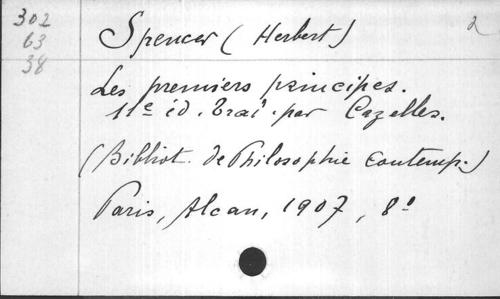 302
63
38
Spencer (Herbert)
2
Les premiers principes.
11e éd. trad. par Cazelles.
(Bibliot. de Philosophie contemp.)
Paris, Alcan, 1907, 8°